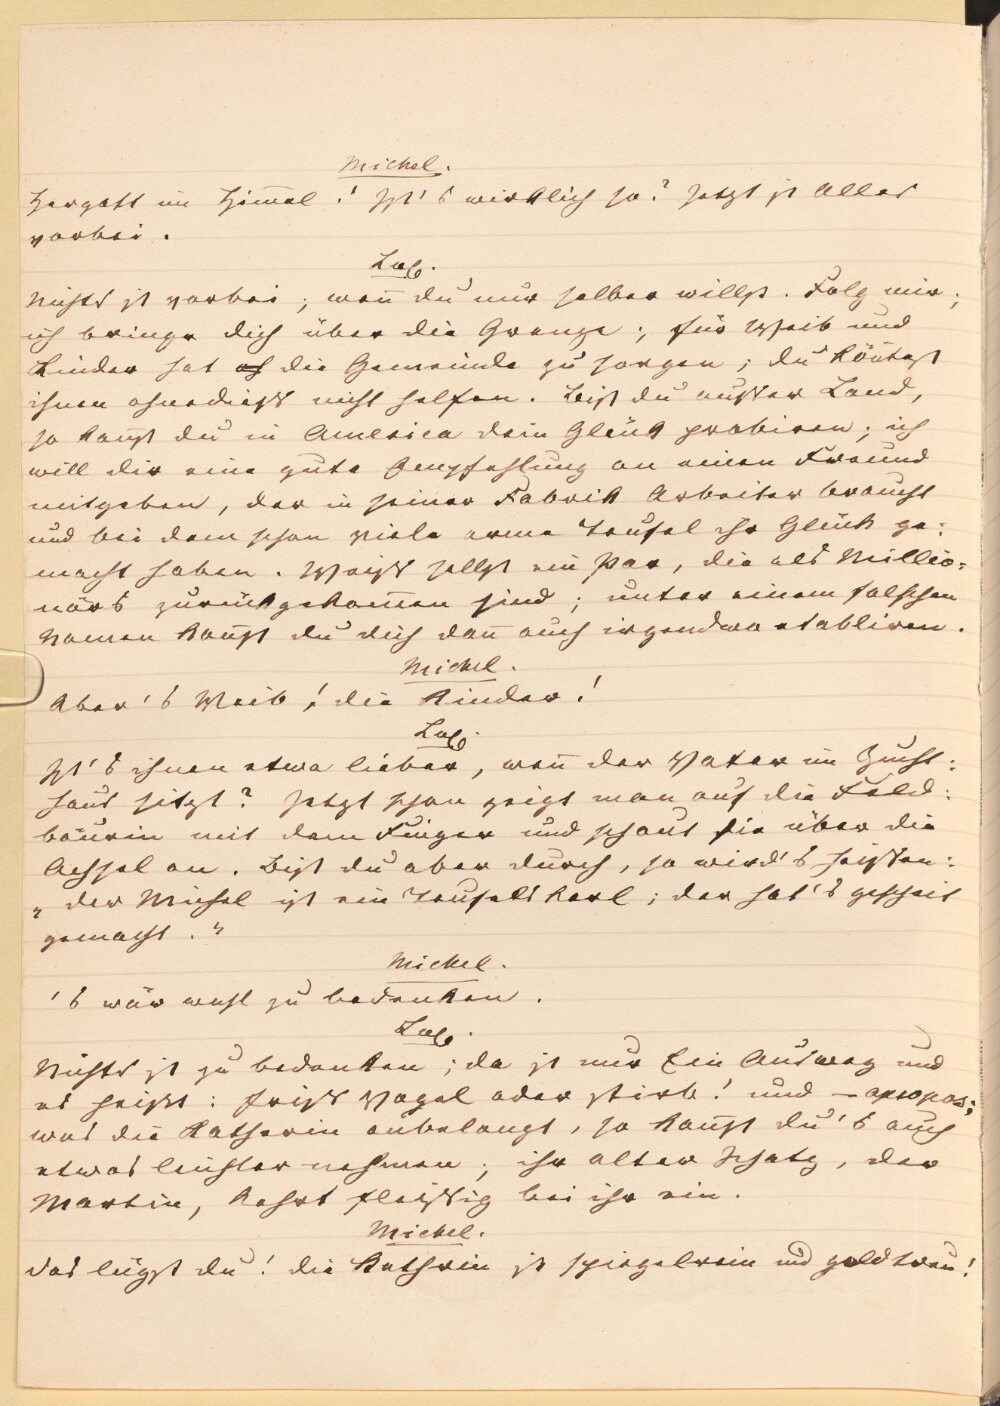 Michel.
Hergott im Himmel! Ist's wirklich so? Jetzt ist Alles
vorbei.
Lux.
Nichts ist vorbei; wen̄ du nur selber willst. Folg mir;
ich bringe dich über die Grenze; für Weib und
Kinder hat die Gemeinde zu sorgen; du kön̄test
ihnen ohnedieß nicht helfen. Bist du außer Land,
so kan̄st du in America dein Glück probiren; ich
will dir eine gute Empfehlung an einen Freund
mitgeben, der in seiner Fabrik Arbeiter braucht
und bei dem schon viele arme Teufel ihr Glück ge:
macht haben. Weiß selbst ein Par, die als Millio:
närs zurückgekom̄en sind; unter einem falschen
Namen kan̄st du dich dan̄ auch irgendwo etabliren.
Michel.
Aber 's Weib! die Kinder!
Lux.
Ist's ihnen etwa lieber, wen̄ der Vater im Zucht:
haus sitzt? Jetzt schon zeigt man auf die Feld:
bäurin mit dem Finger und schaut sie über die
Achsel an. Bist du aber durch, so wird's heißen:
„der Michel ist ein Teufelskerl; der hat's gescheit
gemacht."
Michel.
's wär wohl zu bedenken.
Lux.
Nichts ist zu bedenken; da ist nur Ein Ausweg und
es heißt: friß Vogel oder stirb! und – apropos;
was die Katherin anbelangt, so kan̄st du's auch
etwas leichter nehmen; ihr alter Schatz, der
Martin, kehrt fleißig bei ihr ein.
Michel.
Das lügst du! die Kathrin ist spiegelrein und goldtreu!